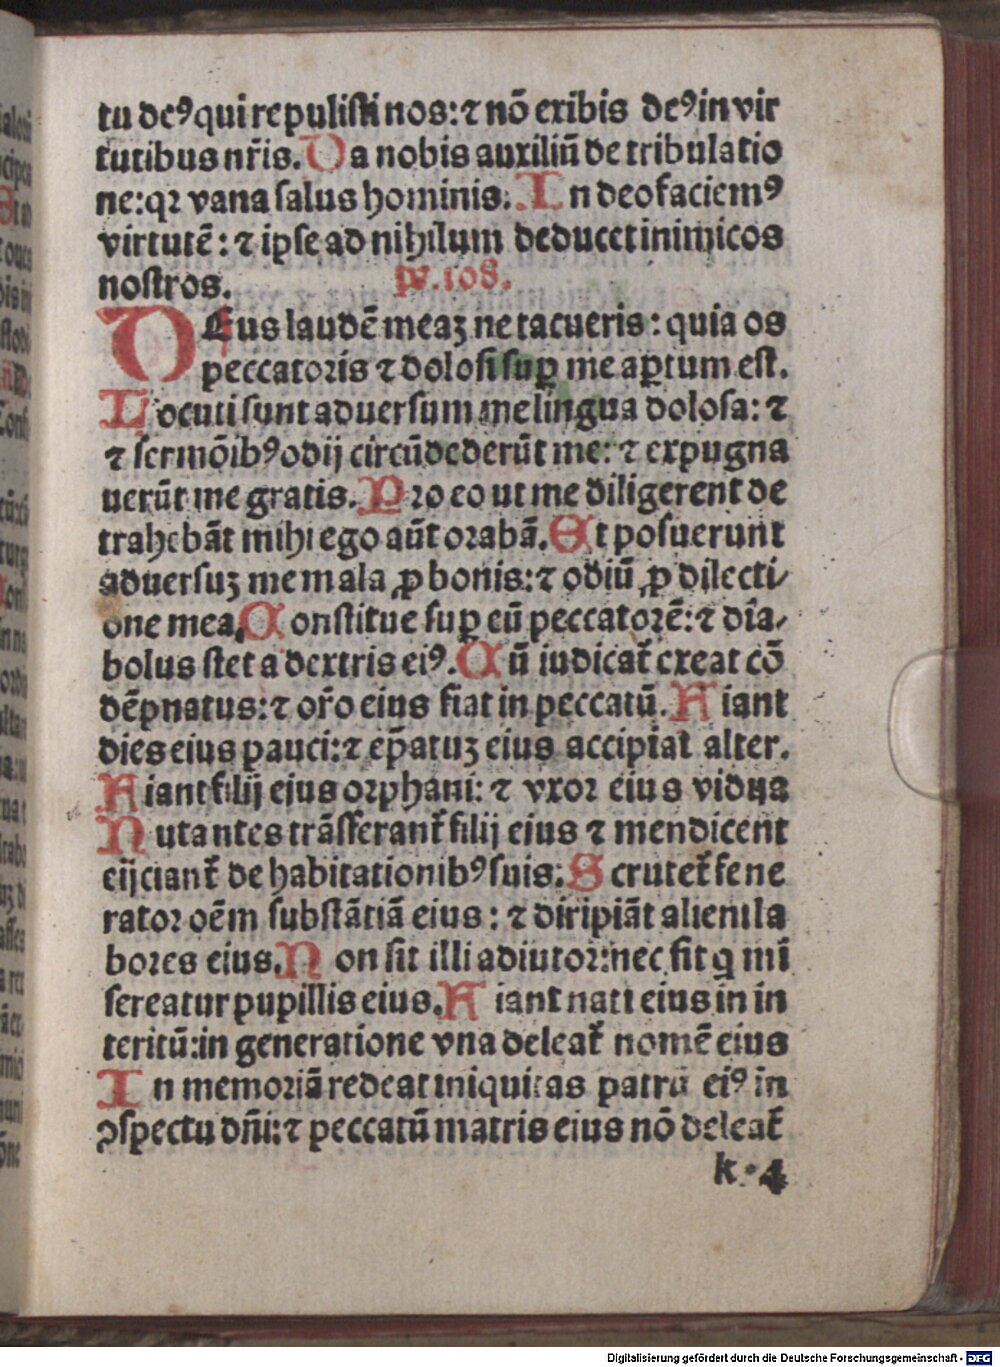 tu deꝰ qui repulisti nos: ⁊ nō exibis deꝰ in vir
tutibus nr̄is. Da nobis auxiliū de tribulatio
ne: qꝛ vana salus hominis. In deo faciemꝰ
virtutē: ⁊ ipse ad nihilum deducet inimicos
nostros. ps. 108.
DEus laudē meaꝫ ne tacueris: quia os
peccatoris ⁊ dolosi suꝑ me aꝑtum est.
Locuti sunt aduersum me lingua dolosa: ⁊
⁊ sermōibꝰ odij circūdederūt me: ⁊ expugna
uerūt me gratis. Pro eo ut me diligerent de
trahebāt mihi ego aūt orabā. Et posuerunt
aduersuꝫ me mala ꝓ bonis: ⁊ odiū ꝓ dilecti⸗
one mea. Constitue suꝑ eū peccatorē: ⁊ dia⸗
bolus stet a dextris eiꝰ. Cū iudicat᷑ exeat cō
dēpnatus: ⁊ or̄o eius fiat in peccatū. Fiant
dies eius pauci: ⁊ ep̄atuꝫ eius accipiat alter.
Fiant filij eius orphani: ⁊ vxor eius vidua
Nutantes trāsferant᷑ filij eius ⁊ mendicent
eijciant᷑ de habitationibꝰ suis. Scrutet᷑ fene
rator oēm substātiā eius: ⁊ diripiāt alieni la
bores eius. Non sit illi adiutor: nec sit q̄ mi
sereatur pupillis eius. Fiant nati eius in in
teritū: in generatione vna deleat᷑ nomē eius
In memoriā redeat iniquitas patrū eiꝰ in
ꝯspectu dn̄i: ⁊ peccatū matris eius nō deleat᷑
k. 4
Digitalisierung gefördert durch die Deutsche Forschungsgemeinschaft - DFG